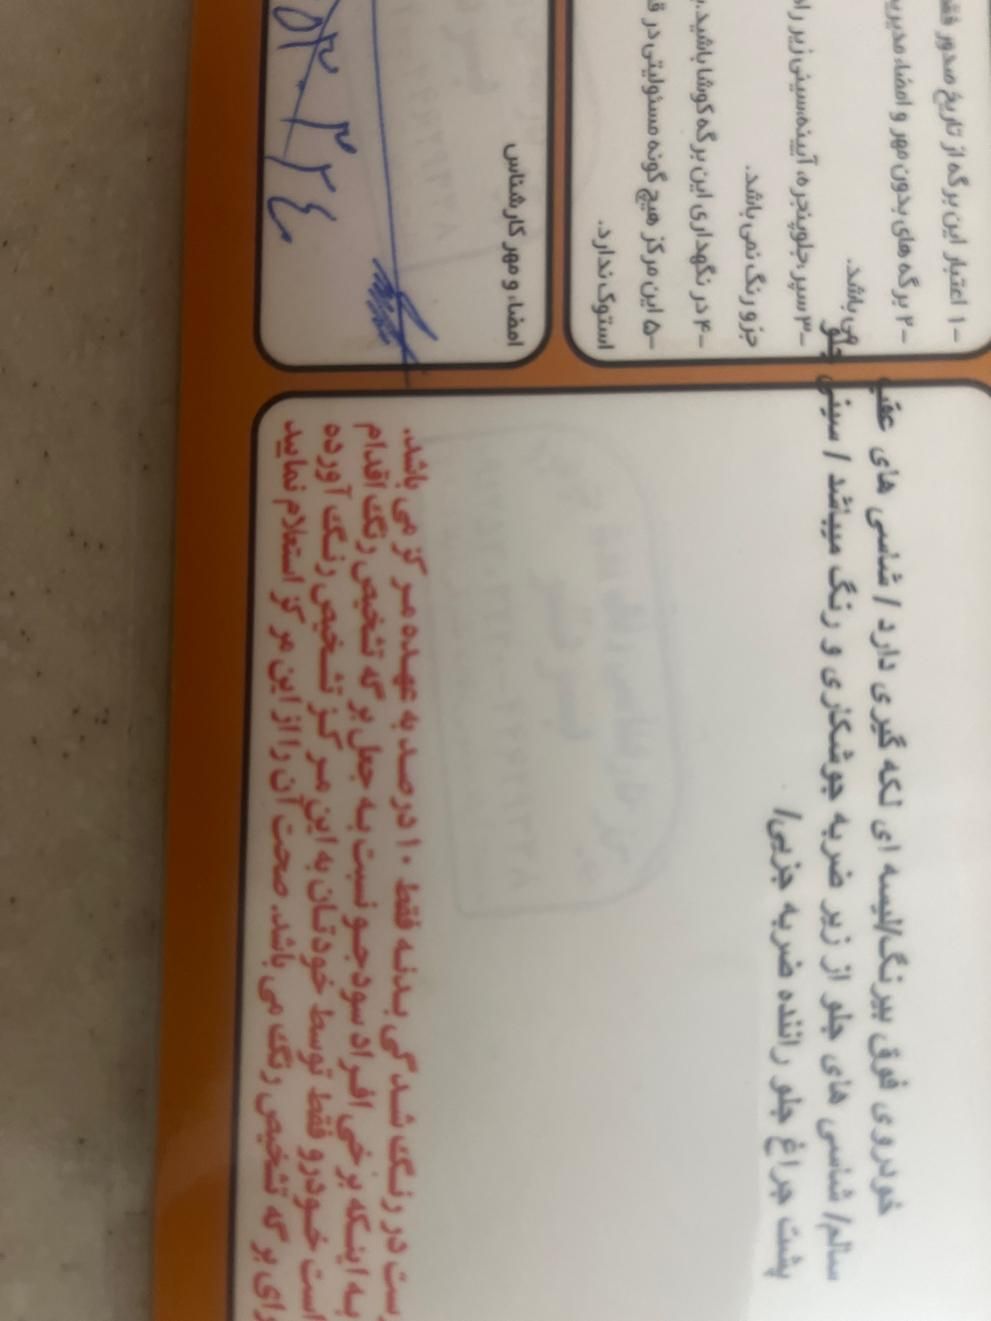 ۱- اعتبار این برگه از تاریخ صدور فقط
۲- برگه های بدون مهر و امضاء مدیریت
می باشد.
۳- سپر، جلوپنجره، آیینه، سینی زیر
جزو رنگ نمی باشد.
۴- در نگهداری این برگه کوشا باشید.
۵- این مرکز هیچ گونه مسئولیتی در
استوک ندارد.
امضاء و مهر کارشناس
خودروی فوق بیرنگ/لیسه ای لکه گیری دارد / شاسی های عقب
سالم/ شاسی های جلو از زیر ضربه جوشکاری و رنگ میباشد / سینی جلو
پشت چراغ جلو راننده ضربه جزیی/
ست در رنگ شدگی بدنه فقط ۱۰ درصد به عهده مرکز می باشد.
به اینکه برخی افراد سودجو نسبت به جعل برگه تشخیص رنگ اقدام
است خودرو فقط توسط خودتان به این مرکز تشخیص رنگ آورده
رای برگه تشخیص رنگ می باشد. صحت آن را از این مرکز استعلام نمایید